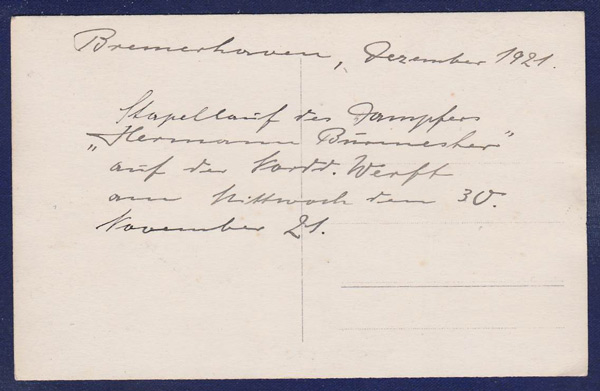 Bremerhaven, Dezember 1921.
Stapellauf des Dampfers
„Hermann Burmester"
auf der Nordd. Werft
am Mittwoch dem 30.
November 21.